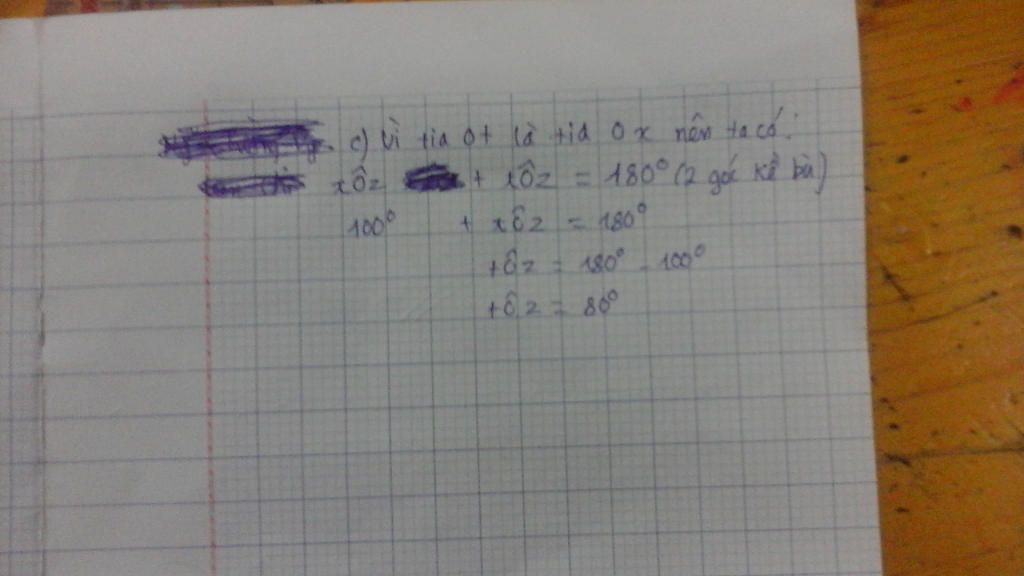 c) Vì tia Ot là tia Ox nên ta có:
xÔz + xÔz = 180° (2 góc kề bù)
100° + xÔz = 180°
tÔz = 180° - 100°
tÔz = 80°